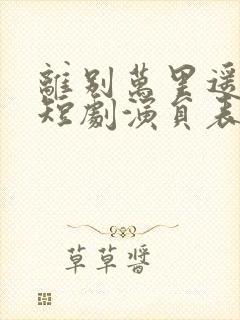 離別萬里遙
短劇演員表
草草醬